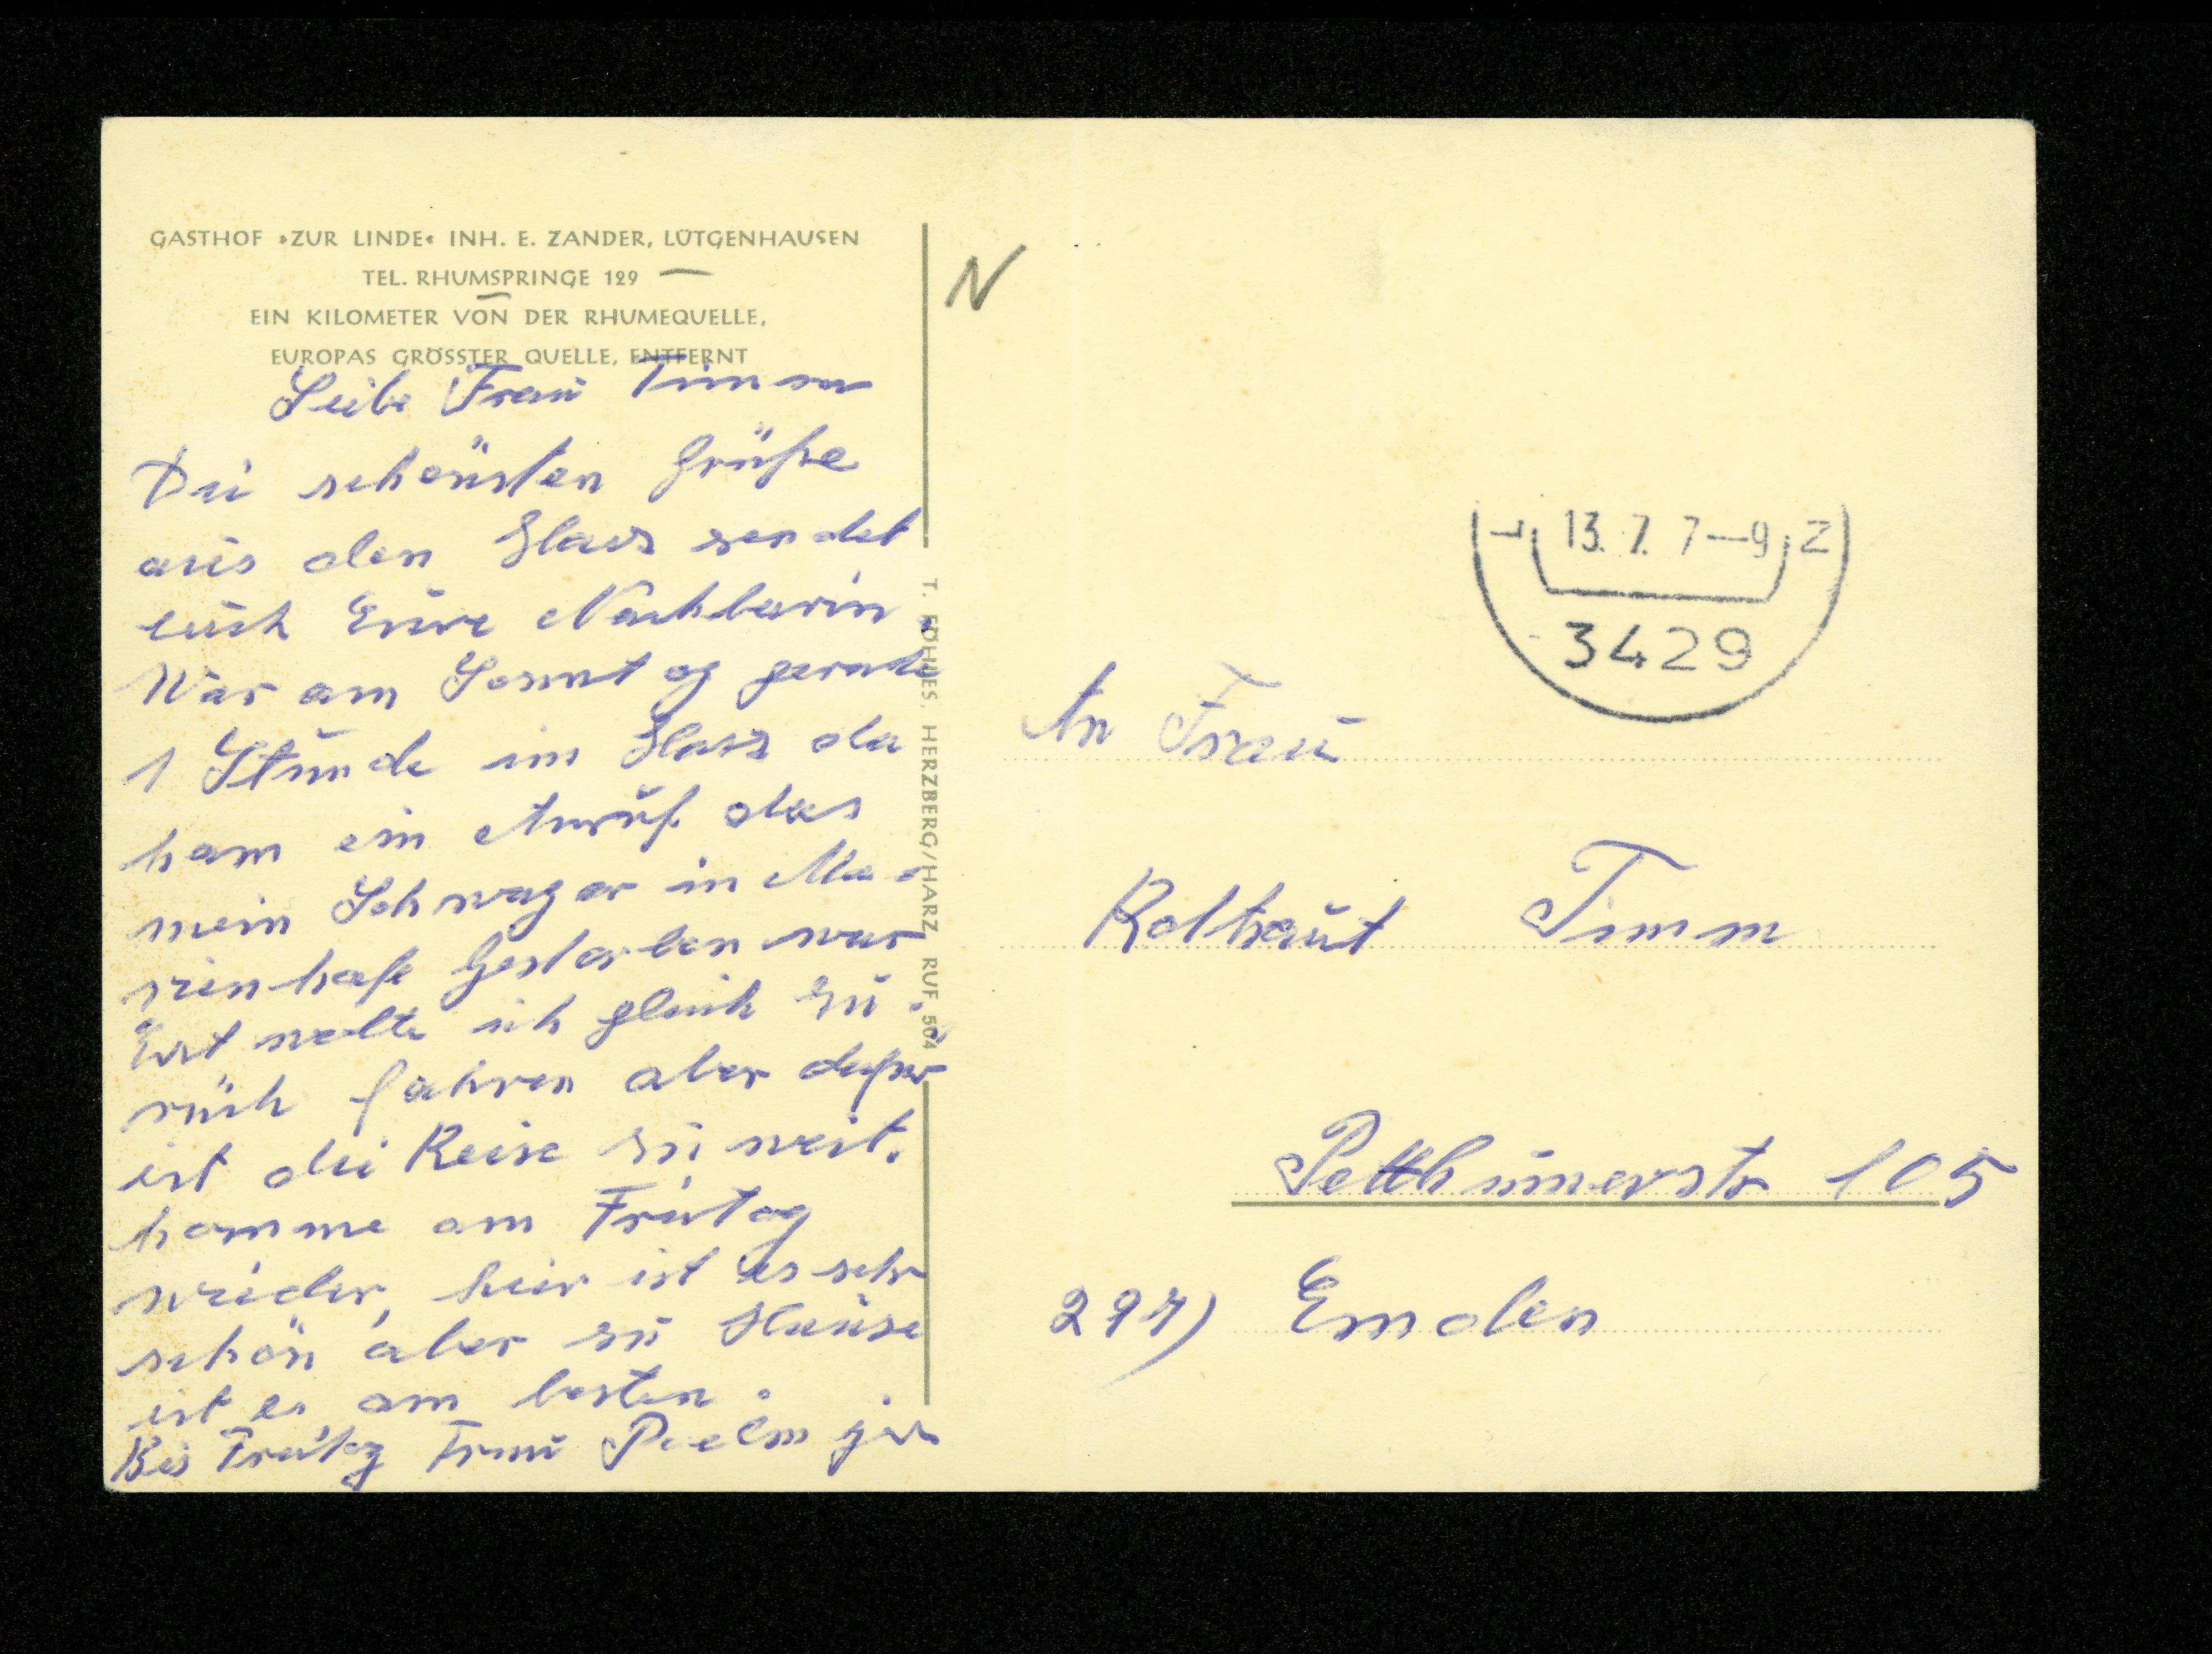 GASTHOF »ZUR LINDE« INH. E. ZANDER, LÜTGENHAUSEN
TEL. RHUMSPRINGE 129
EIN KILOMETER VON DER RHUMEQUELLE,
EUROPAS GRÖSSTER QUELLE, ENTFERNT
Leibe Frau Timm
Dei schönsten Grüße
aus den Harz sendet
euch Eure Nachbarin.
War am Sonntag gerade
1 Stunde im Harz da
kam ein Anruf das
mein Schwager in Ma-
rienhafe Gestorben war
Erst wollte ich gleich zu-
rück fahren aber dafür
ist dei Reise zu weit.
komme am Freitag
wieder, heir ist es sehr
schön aber zu Hause
ist es am besten.
Bis Freitag Frau
T. FÖHLES, HERZBERG/HARZ RUF 504
N
13. 7. 7–9
3429
An Frau
Roltraut Timm
Petkumerstr 105
297) Emden